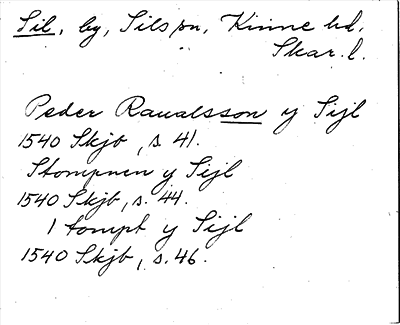 Sil, by, Sils sn, Kinne hd,
Skar. l.
Peder Raualsson y Sijl
1540 Skjb, s. 41.
Stompnen y Sijl
1540 Skjb, s. 44.
1 tompt y Sijl
1540 Skjb, s. 46.